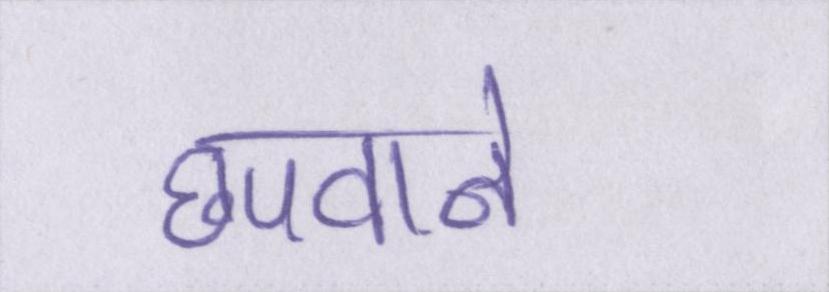 छपवाने